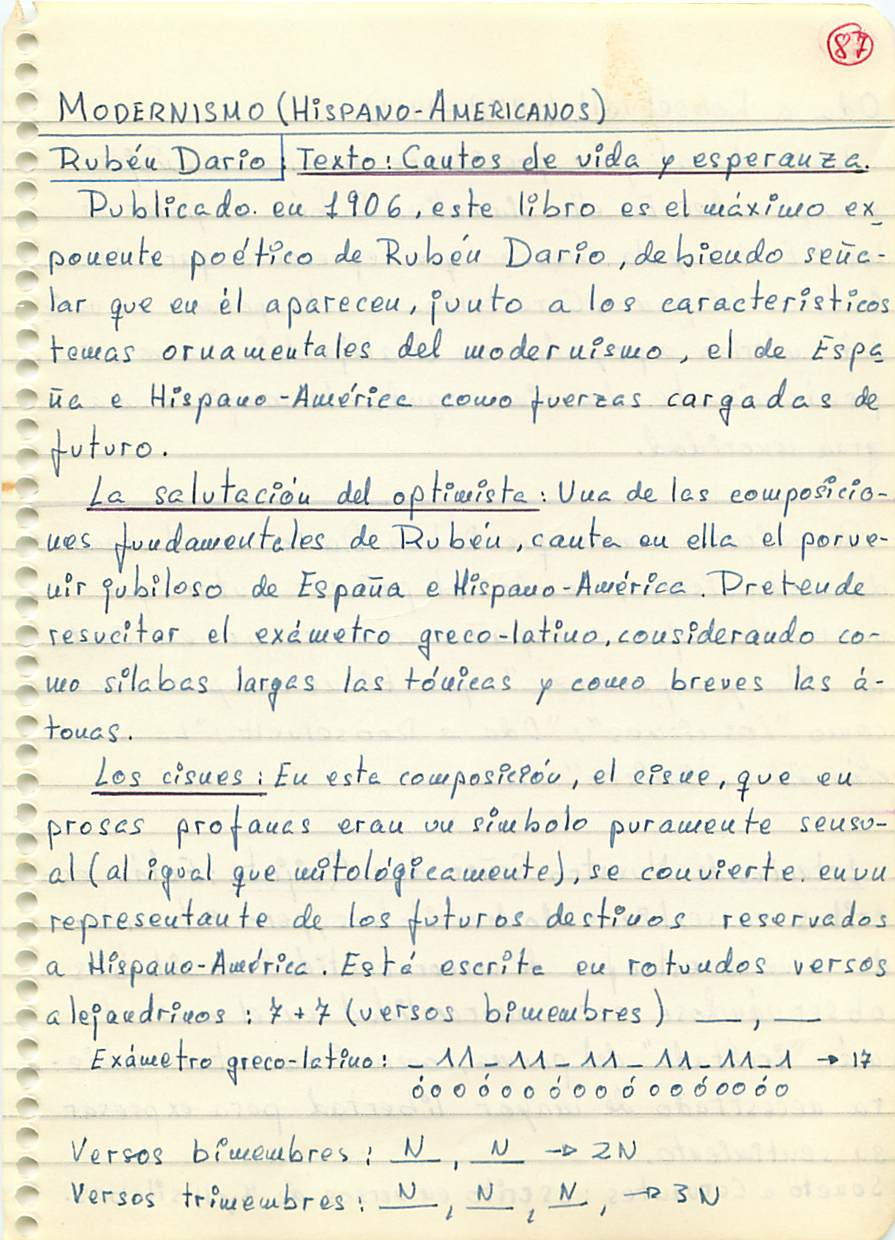 87
MODERNISMO (HISPANO-AMERICANOS)
Rubén Dario Texto: Cantos de vida y esperanza.
Publicado. en 1906, este libro es el máximo ex-
ponente poético de Rubén Dario, debiendo seña-
lar que en él aparecen, junto a los caracteristicos
temas ornamentales del modernismo, el de Espa
ña e Hispano-América como fuerzas cargadas de
futuro.
La salutación del optimista: Una de las composicio-
nes fundamentales de Rubén, canta en ella el porve-
nir jubiloso de España e Hispano-América. Pretende
resucitar el exámetro greco-latino, considerando co-
mo silabas largas las tónicas y como breves las á-
tonas.
Los cisnes: En esta composición, el cisne, que en
prosas profanas eran un simbolo puramente sensu-
al (al igual que mitológicamente), se convierte. en un
representante de los futuros destinos reservados
a Hispano-América. Está escrita en rotundos versos
alejandrinos: 7+7 (versos bimembres) __, __
Exámetro greco-latino: _ 11 _ 11 _ 11 _ 11 _ 11 _ 1 → 17
óoo óoo óoo óoo óoo óo
Versos bimembres: N, N → 2N
Versos trimembres: N, N, N, → 3N